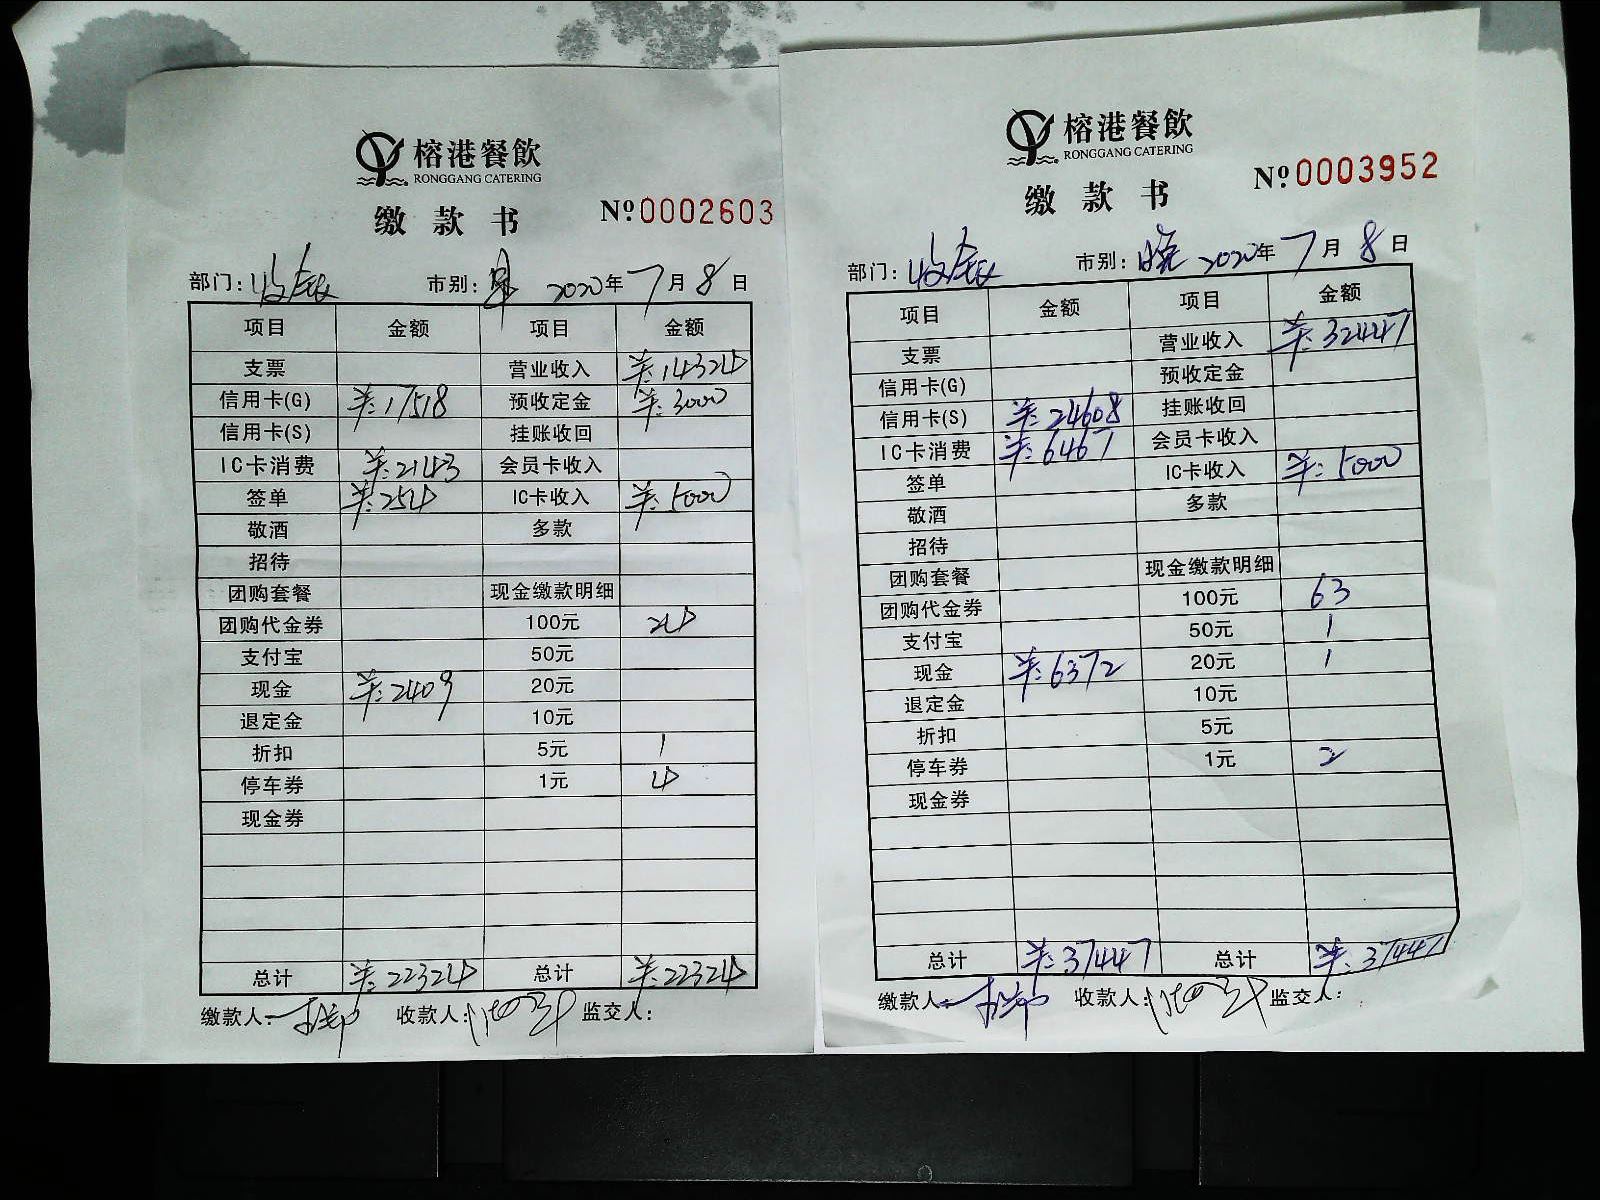 榕港餐飲
RONGGANG CATERING
缴款书
№0002603
部门:收银 市别:早 2020年7月8日
项目 金额 项目 金额
支票 营业收入 羊:14324
信用卡(G) 羊:17518 预收定金 羊:3000
信用卡(S) 挂账收回
IC卡消费 羊:2143 会员卡收入
签单 羊:254 IC卡收入 羊:5000
敬酒 多款
招待
团购套餐 现金缴款明细
团购代金券 100元 24
支付宝 50元
现金 羊:2409 20元
退定金 10元
折扣 5元 1
停车券 1元 4
现金券
总计 羊:22324 总计 羊:22324
缴款人: 收款人: 监交人:
榕港餐飲
RONGGANG CATERING
缴款书
№0003952
部门:收银 市别:晚 2020年7月8日
项目 金额 项目 金额
支票 营业收入 羊:32447
信用卡(G) 预收定金
信用卡(S) 羊:24608 挂账收回
IC卡消费 羊:6467 会员卡收入
签单 IC卡收入 羊:5000
敬酒 多款
招待
团购套餐 现金缴款明细
团购代金券 100元 63
支付宝 50元 1
现金 羊:6372 20元 1
退定金 10元
折扣 5元
停车券 1元 2
现金券
总计 羊:37447 总计 羊:37447
缴款人: 收款人: 监交人: